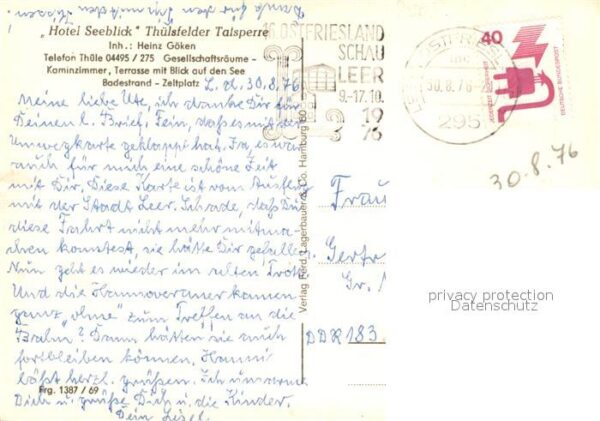 „Hotel Seeblick“ Thülsfelder Talsperre
Inh.: Heinz Göken
Telefon Thüle 04495 / 275 Gesellschaftsräume -
Kaminzimmer, Terrasse mit Blick auf den See
Badestrand - Zeltplatz
L. d. 30.8.76
Meine liebe Ute, ich danke Dir für
Deinen l. Brief. Fein, daß es mit der
Umwegkarte geklappt hat. Ja, es war
auch für mich eine schöne Zeit
mit Dir. Diese Karte ist vom Ausflug
mit der Stadt Leer. Schade, daß Du
diese Fahrt nicht mehr mitma-
chen konntest, sie hätte Dir gefallen.
Nun geht es wieder im alten Trott.
Und die Hannoveraner kamen
ganz „ohne“ zum Treffen an die
Bahn? Dann hätten sie auch
fortbleiben können. Hanni
läßt herzl. grüßen. Ich umarme
Dich u. grüße Dich u. die Kinder.
Dein Liesel.
Frg. 1387 / 69
Verlag Ferd. Lagerbauer & Co. Hamburg 60
16. OSTFRIESLAND
SCHAU
LEER
9.-17.10.
19
76
30.8.76
295
40
DEUTSCHE BUNDESPOST
30.8.76
Frau
Gertr
Gr.
DDR 183
privacy protection
Datenschutz